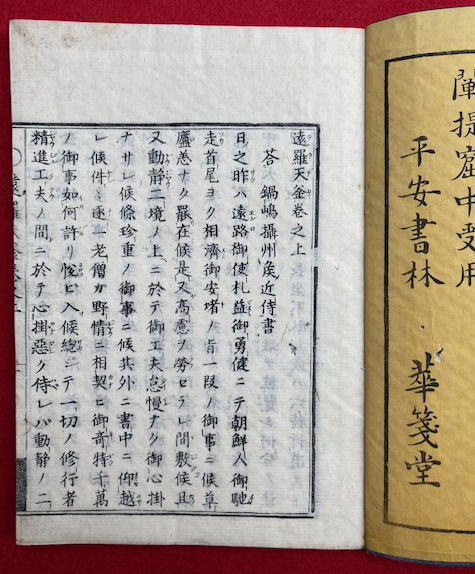 闡提窟中受用
平安書林 華箋堂
遠羅天釜卷之上
答鍋嶋攝州侯近侍書
日之昨ハ遠路御使札益御勇健ニテ朝鮮人御馳
走首尾ヨク相濟御安堵ノ旨一段ノ御事ニ候草
廬恙ナク罷在候是又高慮ヲ勞セラレ間敷候且
又動静二境ノ上ニ於テ御工夫怠慢ナク御心掛
ナサレ候條珍重ノ御事ニ候其外ニ書中ニ仰越
レ候件々逐一老僧ガ野情ニ相契ヒ御奇特千萬
ノ御事如何許リ悦ビ入候總ジテ一切ノ修行者
精進工夫ノ間ニ於テ心掛惡ク侍レバ動静ノ二